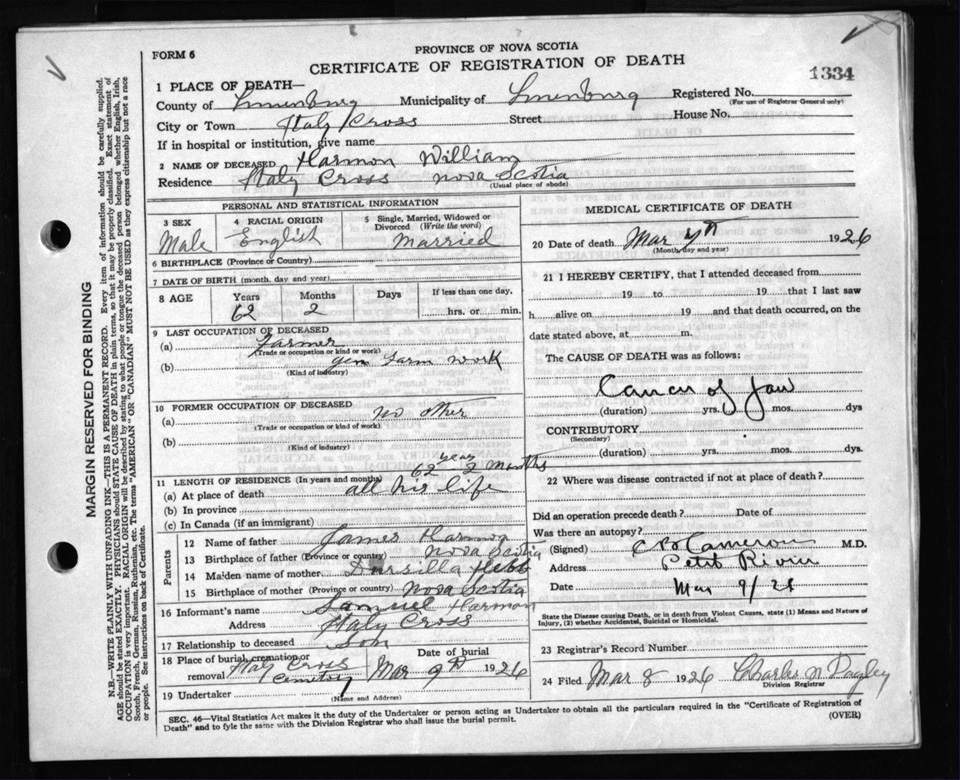 PROVINCE OF NOVA SCOTIA
FORM 6
CERTIFICATE OF REGISTRATION OF DEATH
1334
1 PLACE OF DEATH—
Registered No.
(For use of Registrar General only)
County of Lunenburg Municipality of Lunenburg
City or Town Italy Cross Street House No.
If in hospital or institution, give name
2 NAME OF DECEASED Harmon William
Residence Italy Cross Nova Scotia
(Usual place of abode)
PERSONAL AND STATISTICAL INFORMATION
3 SEX Male
4 RACIAL ORIGIN English
5 Single, Married, Widowed or Divorced (Write the word) Married
6 BIRTHPLACE (Province or Country)
7 DATE OF BIRTH (month, day and year)
8 AGE Years Months Days If less than one day,
62 2 hrs. or min.
9 LAST OCCUPATION OF DECEASED
(a) Farmer
(Trade or occupation or kind or work)
(b) gen farm work
(Kind of industry)
10 FORMER OCCUPATION OF DECEASED
(a) no other
(Trade or occupation or kind of work)
(b)
(Kind of industry)
11 LENGTH OF RESIDENCE (In years and months) 62 years 2 months
(a) At place of death all his life
(b) In province
(c) In Canada (if an immigrant)
Parents
12 Name of father James Harmon
13 Birthplace of father (Province or country) Nova Scotia
14 Maiden name of mother Hebb
15 Birthplace of mother (Province or country) Nova Scotia
16 Informant's name Samuel Harmon
Address Italy Cross
17 Relationship to deceased Son
18 Place of burial, cremation or removal Italy Cross Cemetery
Date of burial Mar 9th 1926
19 Undertaker
(Name and Address)
MEDICAL CERTIFICATE OF DEATH
20 Date of death Mar 7th 1926
(Month, day and year)
21 I HEREBY CERTIFY, that I attended deceased from
19 to 19 that I last saw
h alive on 19 and that death occurred, on the
date stated above, at m.
The CAUSE OF DEATH was as follows:
Cancer of Jaw
(duration) yrs. mos. dys
CONTRIBUTORY
(Secondary)
(duration) yrs. mos. dys.
22 Where was disease contracted if not at place of death?
Did an operation precede death? Date of
Was there an autopsy?
(Signed) Cameron M.D.
Address Petite Riviere
Date Mar 9/26
State the Disease causing Death, or in death from Violent Causes, state (1) Means and Nature of
Injury, (2) whether Accidental, Suicidal or Homicidal.
23 Registrar's Record Number
24 Filed Mar 8 1926 Charles N
Division Registrar
SEC. 46—Vital Statistics Act makes it the duty of the Undertaker or person acting as Undertaker to obtain all the particulars required in the "Certificate of Registration of
Death" and to fyle the same with the Division Registrar who shall issue the burial permit. (OVER)
MARGIN RESERVED FOR BINDING
N.B.—WRITE PLAINLY WITH UNFADING INK—THIS IS A PERMANENT RECORD. Every item of information should be carefully supplied.
AGE should be stated EXACTLY. PHYSICIANS should STATE CAUSE OF DEATH in plain terms, so that it may be properly classified. Exact statement of
OCCUPATION is very important. RACIAL ORIGIN will be described by stating to what people or tongue the deceased person belonged whether English, Irish,
Scotch, French, German, Russian, Ruthenian, etc. The terms "AMERICAN" OR "CANADIAN" MUST NOT BE USED as they express citizenship but not a race
or people. See instructions on back of Certificate.